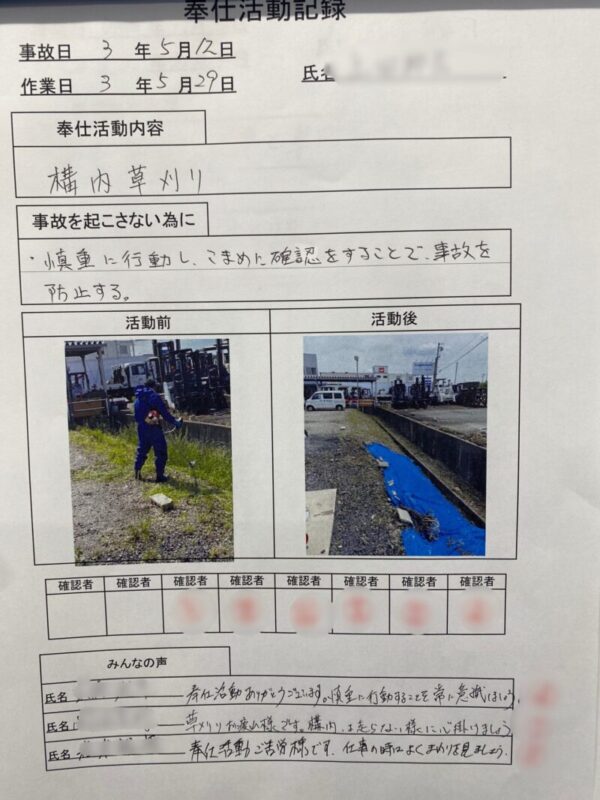 奉仕活動記録
事故日 3 年 5 月 12 日
作業日 3 年 5 月 29 日
氏名
奉仕活動内容
構内草刈り
事故を起こさない為に
・慎重に行動し、こまめに確認をすることで、事故を
防止する。
活動前 活動後
確認者 確認者 確認者 確認者 確認者 確認者 確認者 確認者
みんなの声
氏名 奉仕活動ありがとうございます。慎重に行動することを常に意識しましょう。
氏名 草刈りお疲れ様です。構内は走らない様に心掛けましょう。
氏名 奉仕活動ご苦労様です。仕事の時はよくまわりを見ましょう。